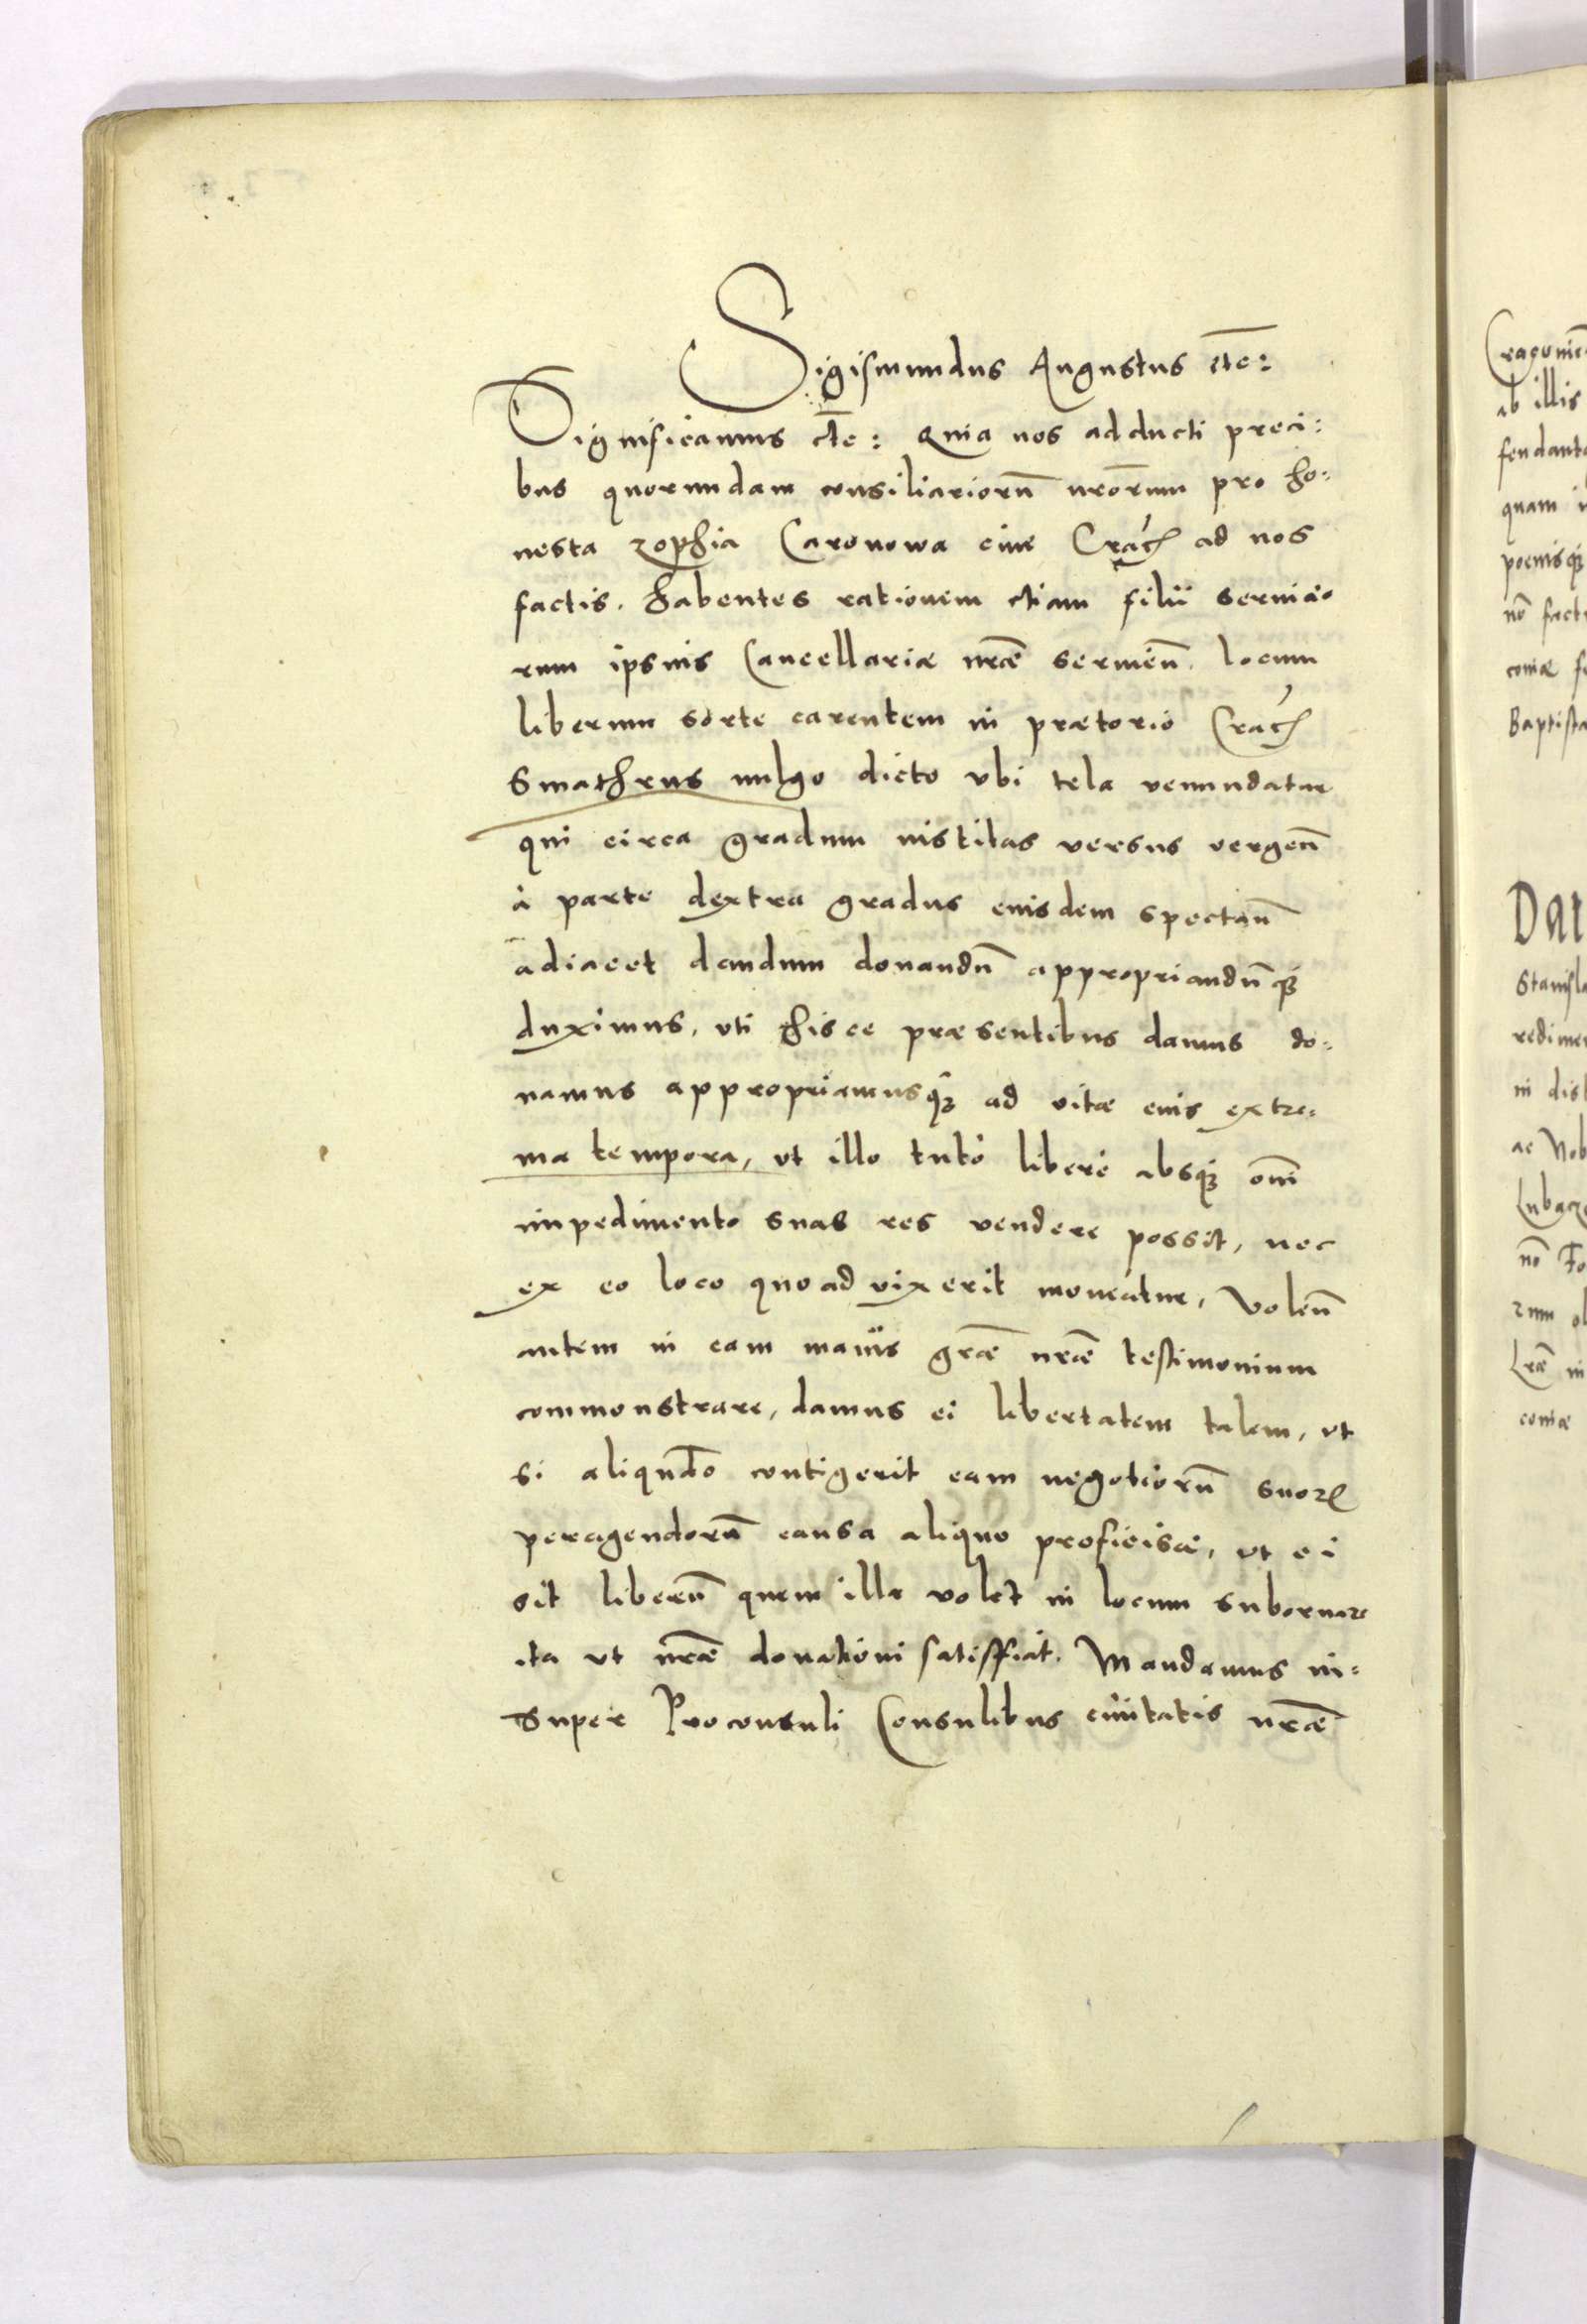 Sigismundus Augustus etc̄:
Significamus etc̄: Quia nos adducti preci:
bus quorundam consiliariorū nr̄orum pro ho:
nesta zophia Caronowa cive Crac̄ ad nos
factis. habentes rationem etiam filii servitio
rum ipsius Cancellariæ nr̄æ servien̄. locum
liberum sorte carentem in prætorio Crac̄
Smathrus vulgo dicto ubi tela venundatur
qui circa gradum institas versus vergen̄
à parte dextra gradus eiusdem spectan̄
adiacet dandum donandū appropriandūq3
duximus, uti hisce præsentibus damus do:
namus appropriamusq3 ad vitæ eius extre:
ma tempora, ut illo tuto libere absq3 om̄i
impedimento suas res vendere possit, nec
ex eo loco quoad vixerit moveatur, Volen̄
autem in eam maius gr̄æ nr̄æ testimonium
commonstrare, damus ei libertatem talem, ut
si aliquādo contigerit eam negotiorū suorꝝ
peragendorū causa aliquo proficisci, ut ei
sit liberū quem illa volet in locum subornare
ita ut nr̄æ donationi satisfiat. Mandamus in:
super Proconsuli Consulibus civitatis nr̄æ
ab illis
quam
Baptista